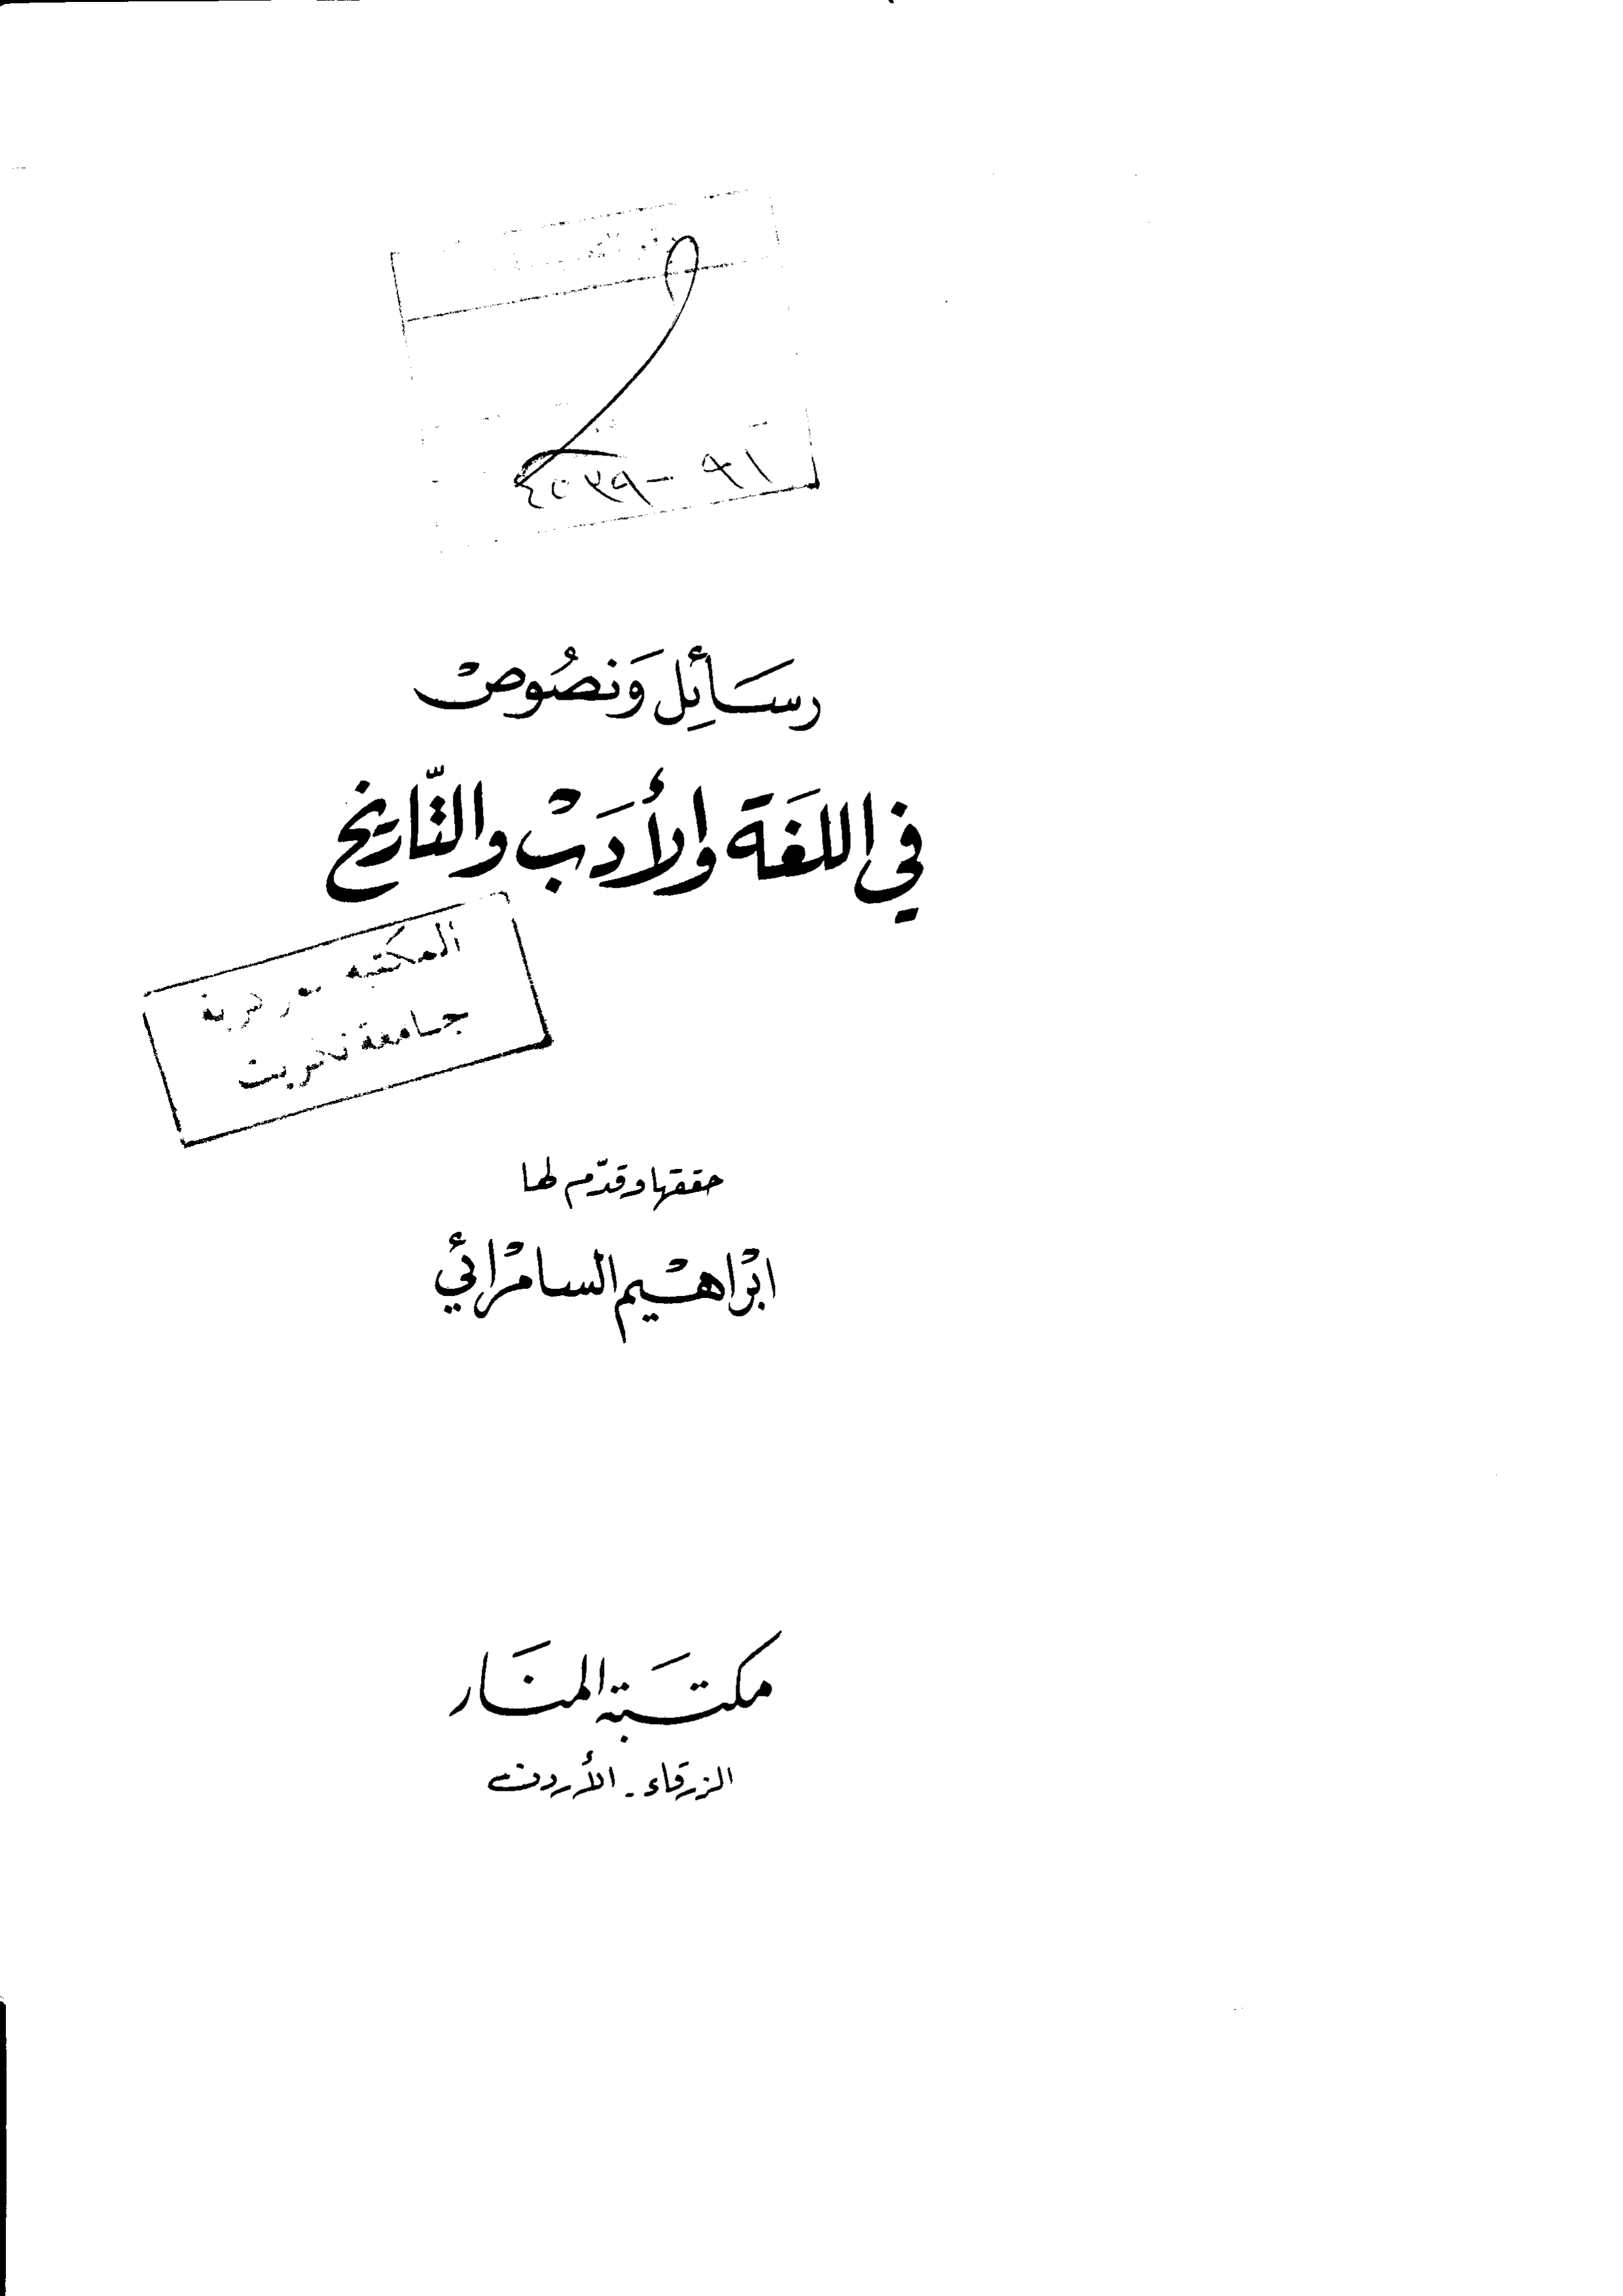 رسَائِل وَنصُوصْ
في اللغَة والأدَبْ والتّاريخ
المكتبه
جامعة تكريت
حققها وقدّم لها
ابْراهيْم السامرْائي
مكتَبة المنَار
الزرقاء - الأردن